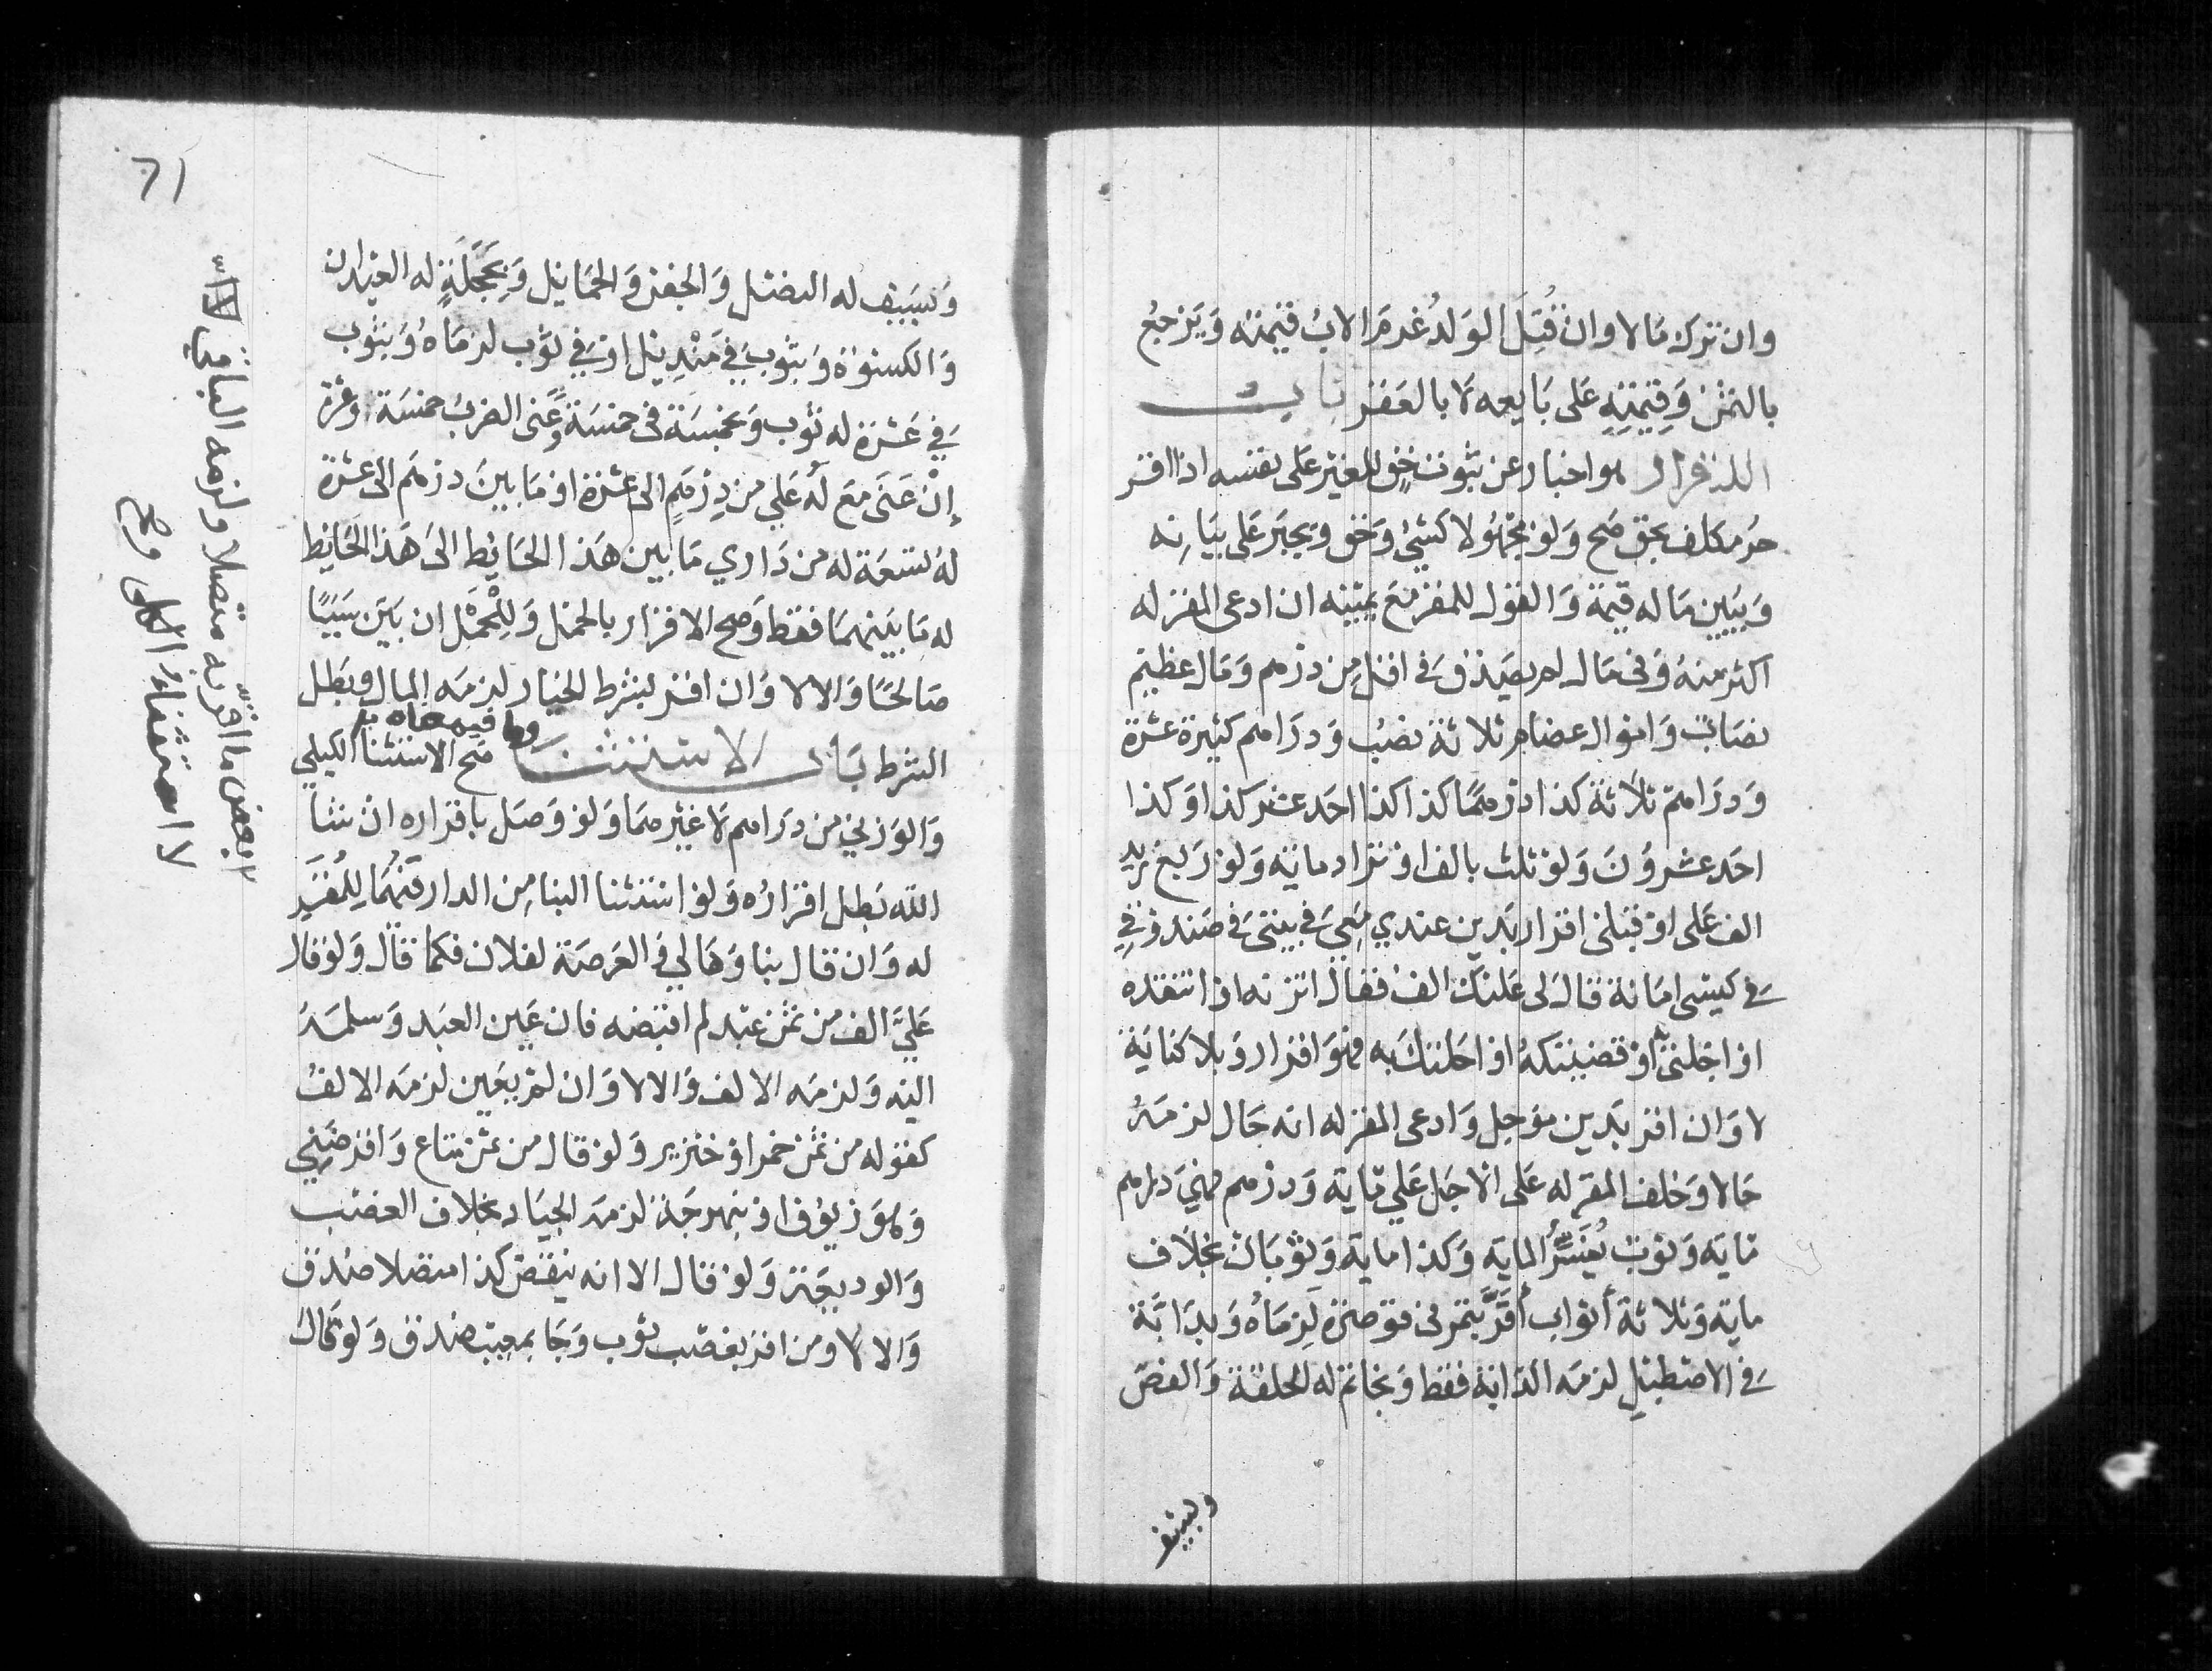 وان ترك مالا وان قتل الولد غرم الاب قيمته ويرجع
بالثمن وقيمته على بايعه لا بالعقر باب
الاقرار هو اخبار عن ثبوت حق للغير على نفسه اذا اقر
حر مكلف بحق صح ولو مجهولا كشئ وحق ويجبر على بيانه
ويبين ما له قيمة والقول للمقر مع يمينه ان ادعى المقر له
اكثر منه وفي مال لم يصدق في اقل من درهم ومال عظيم
نصاب واموال عظام ثلاثة نصب ودراهم كثيرة عشرة
ودراهم ثلاثة كذا درهما كذا كذا احد عشر كذا وكذا
احد عشرون ولو ثلث بالف او تزاد ماية ولو ربع زيد
الف على او قبلى اقرار بدين عندي معي في بيتى في صندوقي
في كيسى امانة قال لى عليك الف فقال اتزنه او انتقده
او اجلنى به او قضيتكه او احلتك به فهو اقرار وبلا كناية
لا وان اقر بدين موجل وادعى المقر له انه حال لزمه
حالا وحلف المقر له على الاجل علي ماية ودرهم فهي دراهم
ماية وثوب يفسر الماية وكذا ماية وثوبان بخلاف
ماية وثلاثة أثواب أقر بتمر في قوصرة لزماه وبدابة
في الاصطبل لزمه الدابة فقط وبخاتم له الحلقة والفص
وبسيف
71
وبسيف له النصل والجفن والحمايل وبحجلة له العيدان
والكسوة وبثوب في منديل او في ثوب لزماه وبثوب
في عشرة له ثوب وبخمسة في خمسة وعنى الضرب خمسة وعشرة
إن عنى مع له علي من درهم الى عشرة او ما بين درهم الى عشرة
له تسعة له من داري ما بين هذا الحايط الى هذا الحايط
له ما بينهما فقط وصح الاقرار بالحمل وللحمل ان بين سببا
صالحا والا لا وان اقر بشرط الخيار لزمه المال وبطل
الشرط باب الاستثنا وما في معناه صح الاستثنا الكيلي
والوزني من دراهم لا غيرهما ولو وصل باقراره ان شا
الله بطل اقراره ولو استثنا البنا من الدار فهما للمقر
له وان قال بناوها لي والعرصة لفلان فكما قال ولو قال
علي الف من ثمن عبد لم اقبضه فان عين العبد وسلمه
اليه ولزمه الالف والا لا وان لم يعين لزمه الالف
كقوله من ثمن خمر او خنزير ولو قال من ثمن متاع واقرضني
وهو زيوف او نبهرجة لزمه الجياد بخلاف الغصب
والوديعة ولو قال الا انه ينقص كذا متصلا صدق
والا لا ومن اقر بغصب ثوب وجا بمعيب صدق ولو قال
بعض ما اقر به متصلا ولزمه الباقي
لا استثناء الكل وصح